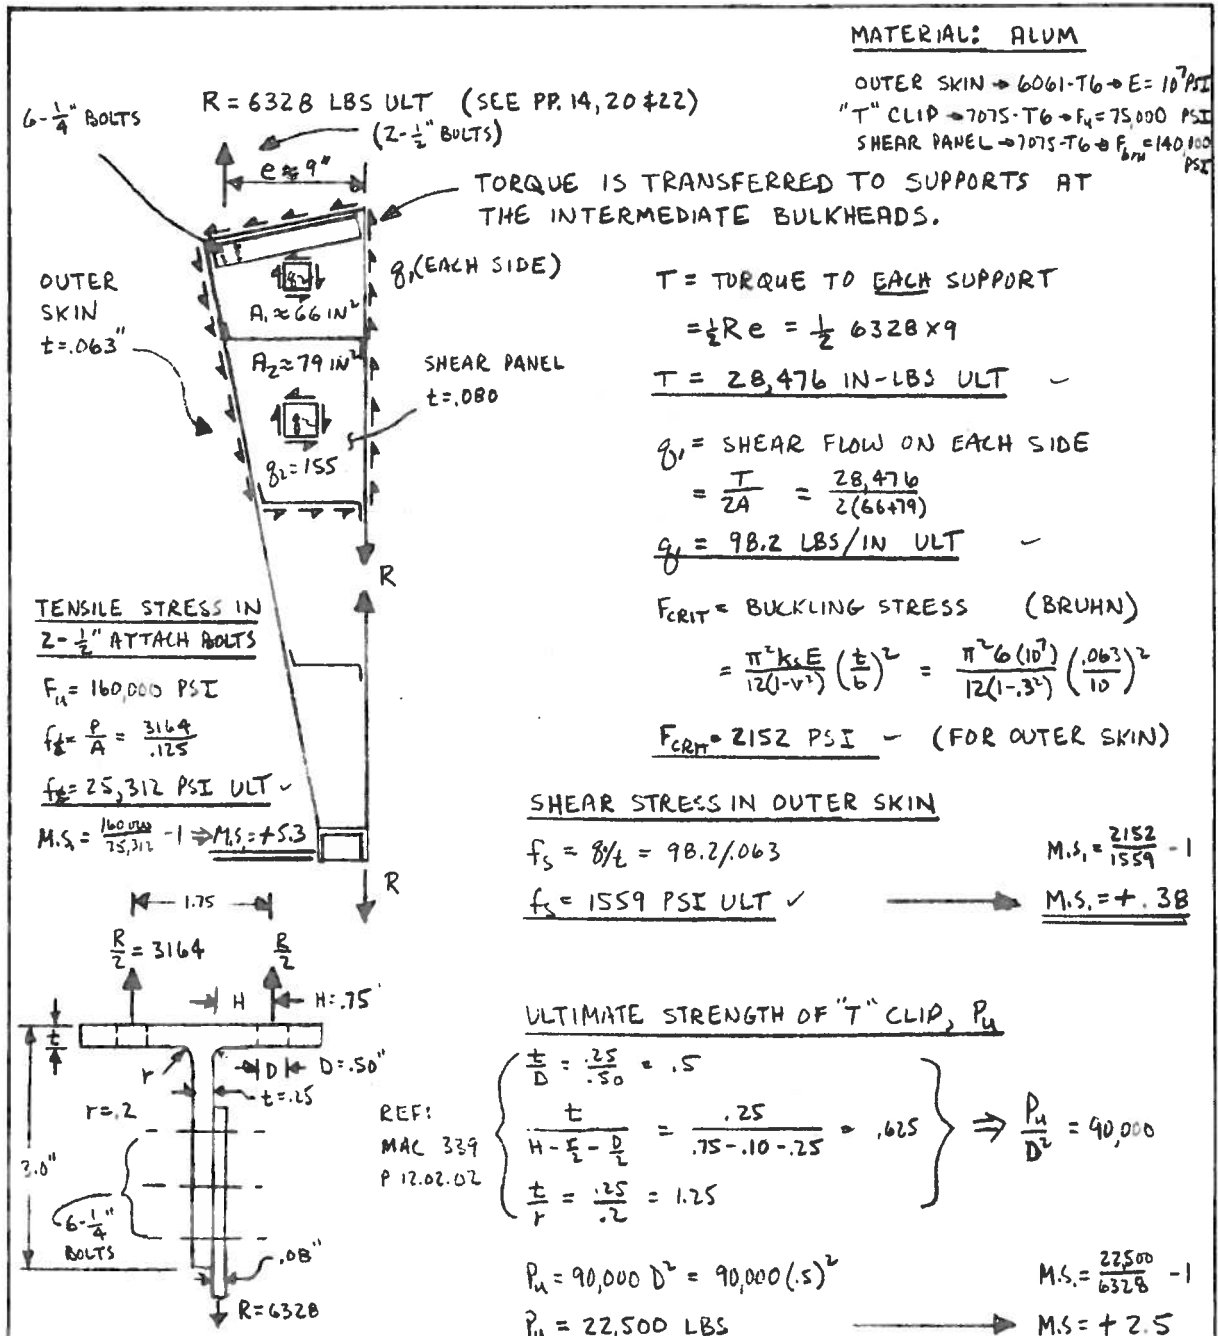 MATERIAL: ALUM
OUTER SKIN → 6061-T6 → E = 10⁷ PSI
"T" CLIP → 7075-T6 → Fu = 75,000 PSI
SHEAR PANEL → 7075-T6 → Fbru = 140,100 PSI
R = 6328 LBS ULT (SEE PP. 14, 20 & 22)
(2-½" BOLTS)
6-¼" BOLTS
e ≈ 9"
TORQUE IS TRANSFERRED TO SUPPORTS AT
THE INTERMEDIATE BULKHEADS.
q₁ (EACH SIDE)
OUTER
SKIN
t=.063"
q₂
A₁ ≈ 66 IN²
A₂ ≈ 79 IN²
SHEAR PANEL
t=.080
q₂=155
R
R
T = TORQUE TO EACH SUPPORT
= ½Re = ½ 6328 × 9
T = 28,476 IN-LBS ULT
q₁ = SHEAR FLOW ON EACH SIDE
= T/2A = 28,476/2(66+79)
q₁ = 98.2 LBS/IN ULT
FCRIT = BUCKLING STRESS (BRUHN)
= π²ksE/12(1-ν²) (t/b)² = π²6(10⁷)/12(1-.3²) (.063/10)²
FCRIT = 2152 PSI (FOR OUTER SKIN)
TENSILE STRESS IN
2-½" ATTACH BOLTS
Fu = 160,000 PSI
ft = P/A = 3164/.125
ft = 25,312 PSI ULT ✓
M.S. = 160,000/25,312 - 1 ⇒ M.S. = +5.3
SHEAR STRESS IN OUTER SKIN
fs = q/t = 98.2/.063
fs = 1559 PSI ULT ✓
M.S. = 2152/1559 - 1
M.S. = +.38
1.75
R/2 = 3164
R/2
H
H=.75
t
r
D
D=.50"
t=.25
r=.2
3.0"
6-¼"
BOLTS
.08"
R=6328
ULTIMATE STRENGTH OF "T" CLIP, Pu
REF:
MAC 339
P 12.02.02
t/D = .25/.50 = .5
t/(H - r/2 - D/2) = .25/(.75-.10-.25) = .625
t/r = .25/.2 = 1.25
⇒ Pu/D² = 90,000
Pu = 90,000 D² = 90,000 (.5)²
Pu = 22,500 LBS
M.S. = 22,500/6328 - 1
M.S. = +2.5